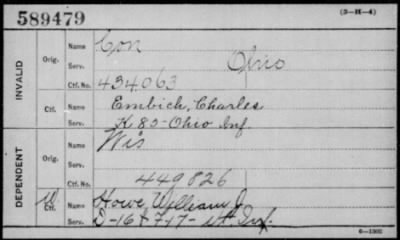 589479
(3-H-4)
INVALID
Orig.
Name
Con
Serv.
Ohio
Ctf. No.
434.063
Ctf.
Name
Embich, Charles
Serv.
K 85-Ohio Inf.
DEPENDENT
Orig.
Name
Wis
Serv.
Ctf. No.
449826
W.
Ctf.
Name
Howe, William J.
Serv.
D-16 & 7-17- Inf.
6-1302